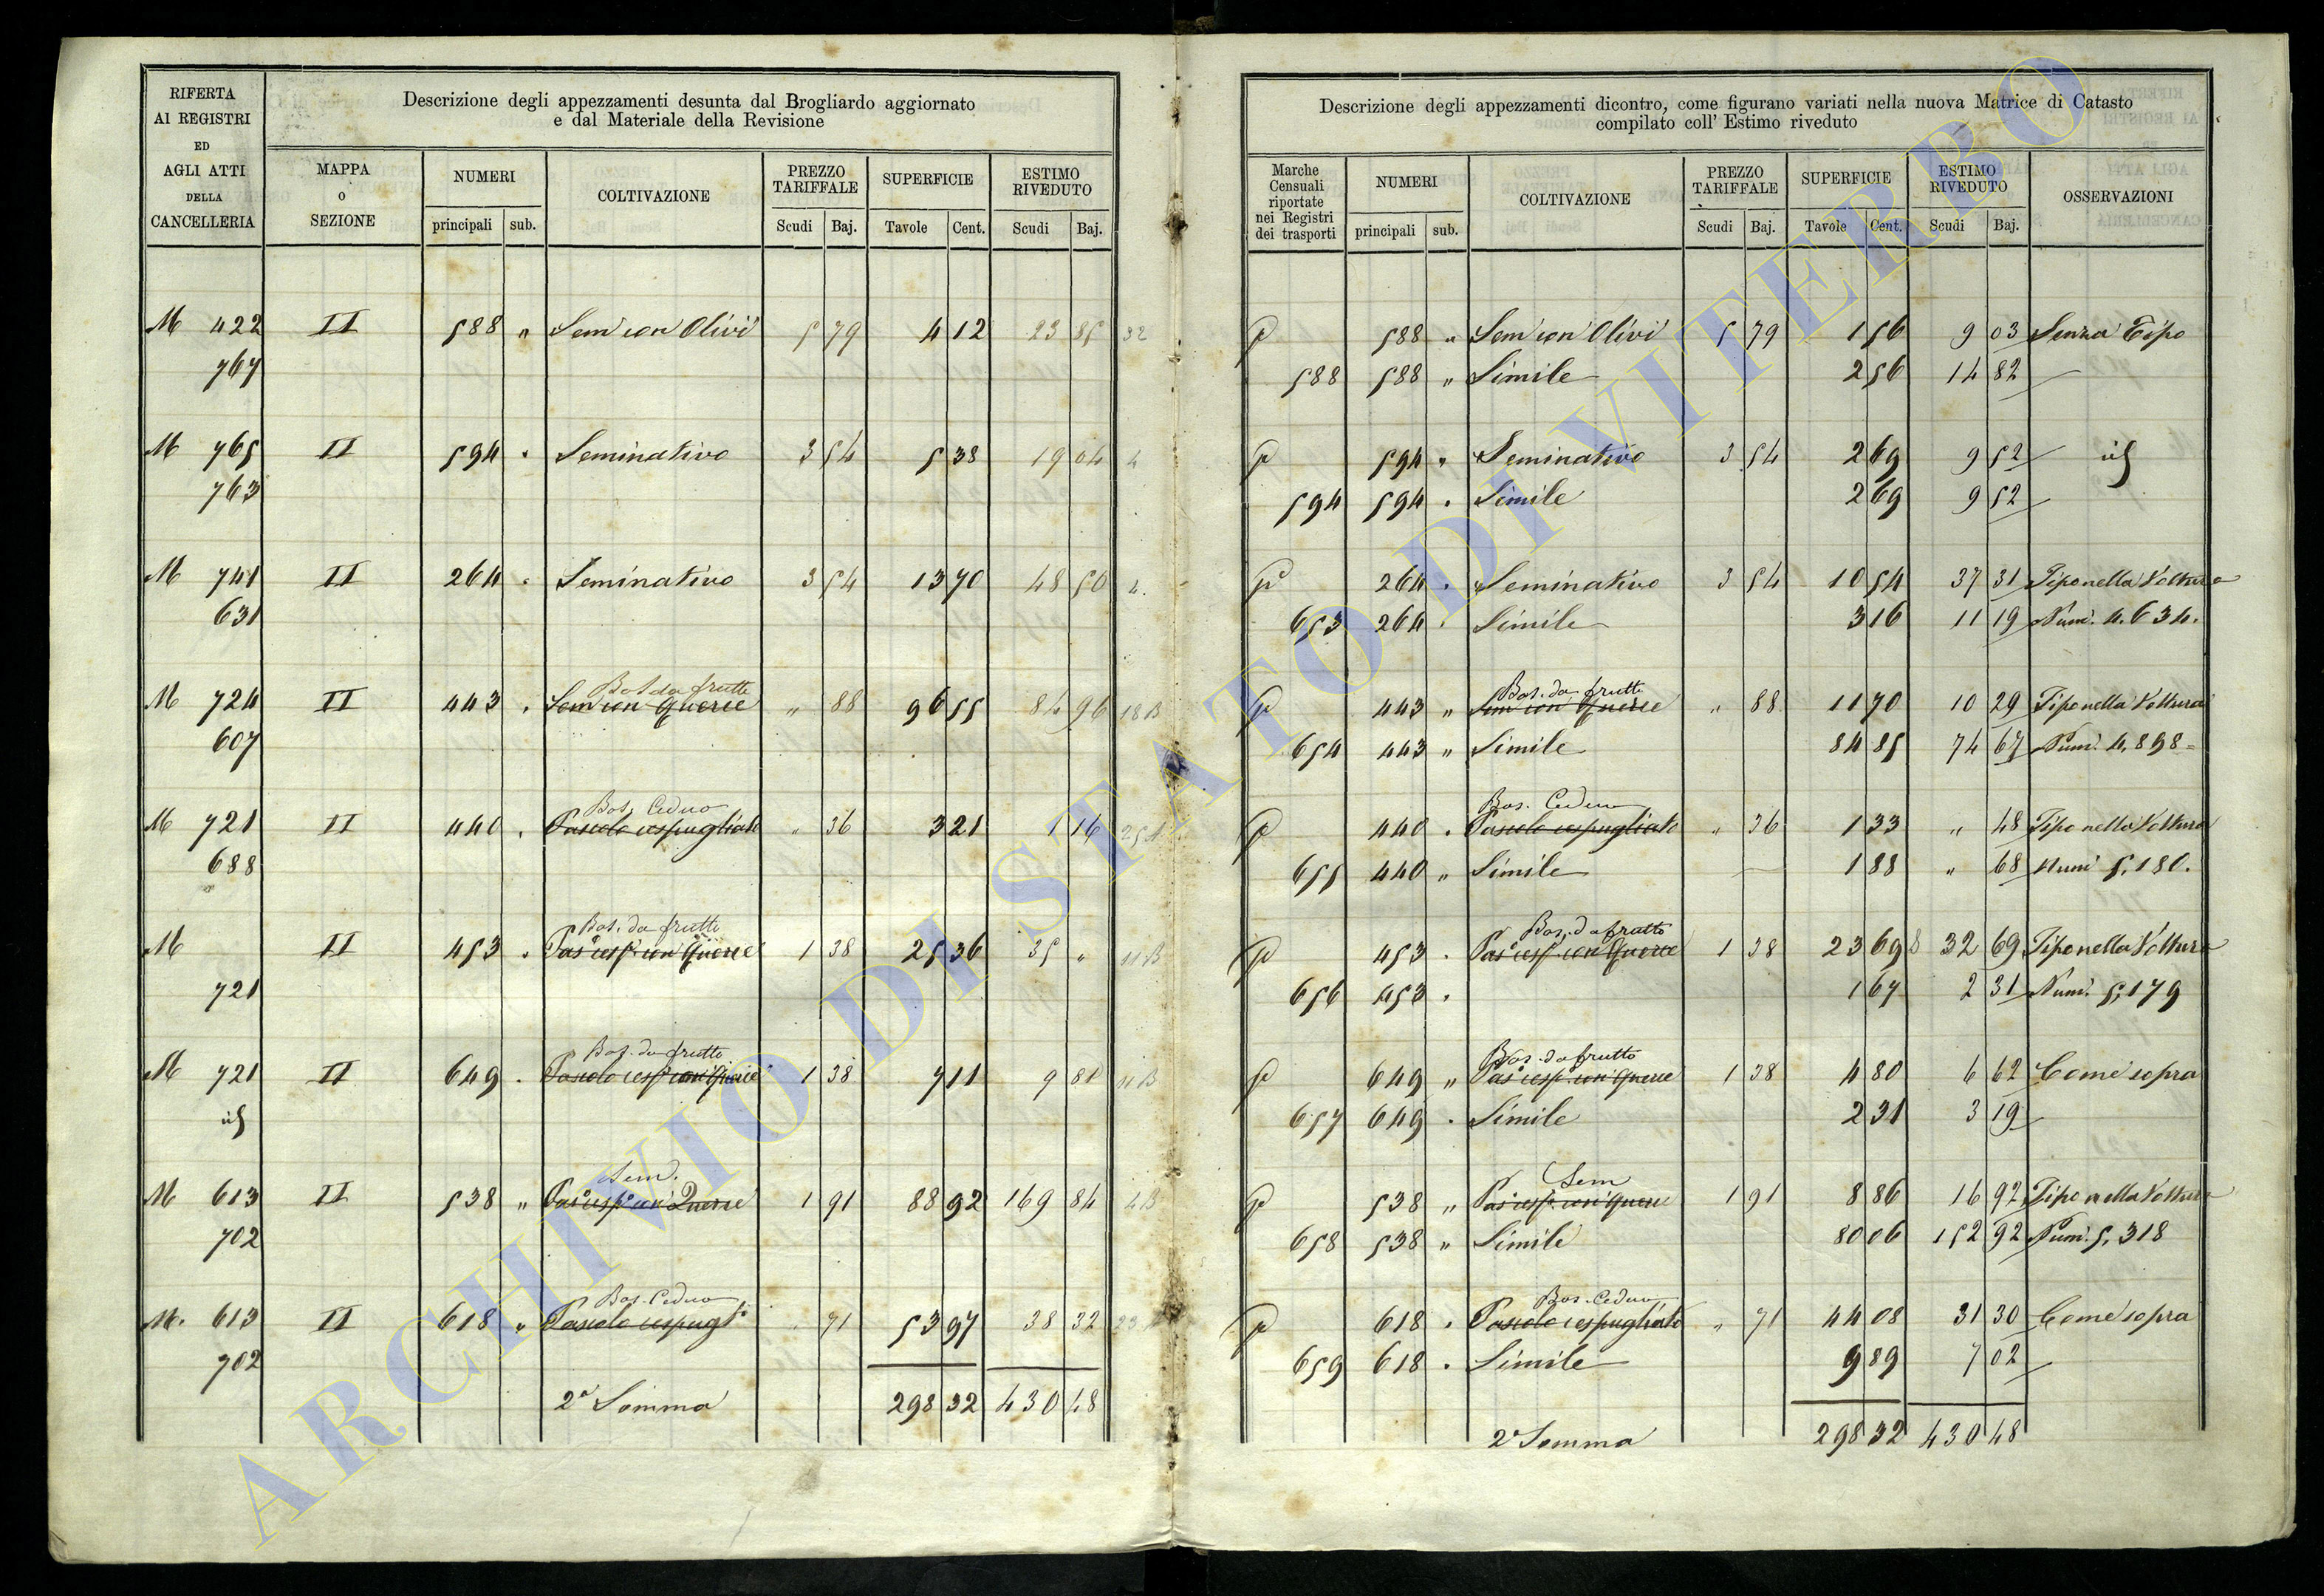 RIFERTA
AI REGISTRI
ED
AGLI ATTI
DELLA
CANCELLERIA
Descrizione degli appezzamenti desunta dal Brogliardo aggiornato
e dal Materiale della Revisione
MAPPA
o
SEZIONE
NUMERI
principali sub.
COLTIVAZIONE
PREZZO
TARIFFALE
Scudi Baj.
SUPERFICIE
Tavole Cent.
ESTIMO
RIVEDUTO
Scudi Baj.
M 422 II 588 " Sem con Olivi 5 79 4 12 23 85 32
767
M 765 II 594 . Seminativo 3 54 5 38 19 04 4
763
M 741 II 264 . Seminativo 3 54 13 70 48 50 4.
631
Bos da frutto
M 724 II 443 . Sem con Querce " 88 96 55 84 96 18 B
607
Bos. Ceduo
M 721 II 440 . Pascolo cespugliato " 36 3 21 1 16 25 A
688
Bos. da frutto
M II 453 . Pas cesp con Querce 1 38 25 36 35 " 11 B
721
Bos. da frutto
M 721 II 649 . Pascolo cesp con Querce 1 38 7 11 9 81 11 B
id
Sem.
M 613 II 538 " Pas cesp con Querce 1 91 88 92 169 84 4 B
702
Bos. Ceduo
M. 613 II 618 " Pascolo cespugl 71 53 97 38 32 23
702
2ª Somma 298 32 430 48
Descrizione degli appezzamenti dicontro, come figurano variati nella nuova Matrice di Catasto
compilato coll' Estimo riveduto
Marche
Censuali
riportate
nei Registri
dei trasporti
NUMERI
principali sub.
COLTIVAZIONE
PREZZO
TARIFFALE
Scudi Baj.
SUPERFICIE
Tavole Cent.
ESTIMO
RIVEDUTO
Scudi Baj.
OSSERVAZIONI
p 588 " Sem con Olivi 5 79 1 56 9 03 Senza Tipo
588 588 " Simile 2 56 14 82
p 594 " Seminativo 3 54 2 69 9 52 id
594 594 . Simile 2 69 9 52
p 264 . Seminativo 3 54 10 54 37 31 Tipo nella Voltura
653 264 . Simile 3 16 11 19 Num. 4.634.
Bos. da frutto
p 443 " Sem con Querce " 88 11 70 10 29 Tipo nella Voltura
654 443 " Simile 84 85 74 67 Num. 4,898=
Bos. Ceduo
p 440 . Pascolo cespugliato " 36 1 33 " 48 Tipo nella Voltura
655 440 " Simile 1 88 " 68 Num 5,180.
Bos. da frutto
p 453 . Pas cesp con Querce 1 38 23 69 32 69 Tipo nella Voltura
656 453 . 1 67 2 31 Num. 5,179
Bos. da frutto
p 649 " Pas cesp con Querce 1 38 4 80 6 62 Come sopra
657 649 . Simile 2 31 3 19
Sem
p 538 " Pas cesp con Querce 1 91 8 86 16 92 Tipo nella Voltura
658 538 " Simile 80 06 152 92 Num. 5,318
Bos. Ceduo
p 618 . Pascolo cespugliato " 71 44 08 31 30 Come sopra
659 618 . Simile 9 89 7 02
2ª Somma 298 32 430 48
ARCHIVIO DI STATO DI VITERBO